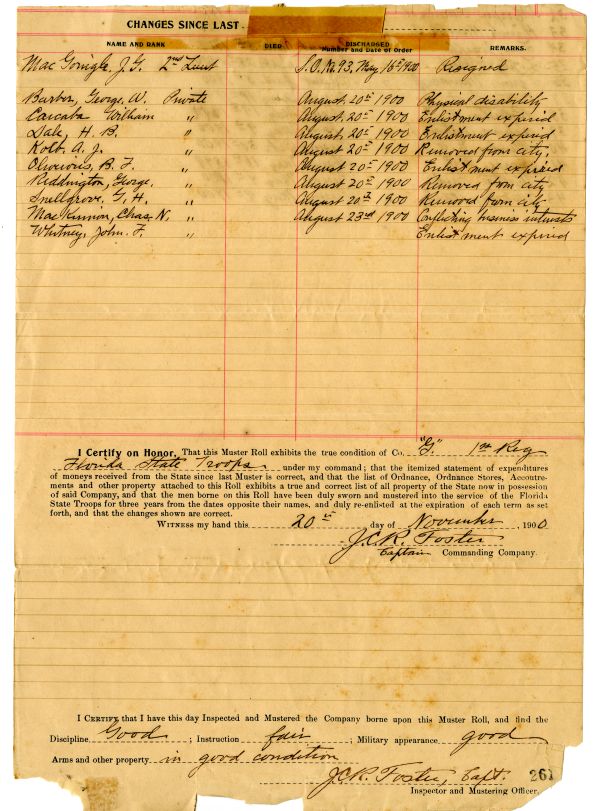 CHANGES SINCE LAST
NAME AND RANK DIED DISCHARGED Number and Date of Order REMARKS.
MacGonigle, J. G. 2nd Lieut S.O. No. 93, May 16th 1900 Resigned
Barber, George, W. Private August 20th 1900 Physical disability
Carcaba William " August 20th 1900 Enlistment expired
Dale, H. B. " August 20th 1900 Enlistment expired
Kolb. A. J. " August 20th 1900 Removed from city.
Oliverius, B. F. " August 20th 1900 Enlistment expired
Riddington, George. " August 20th 1900 Removed from city
Snellgrove, G. H. " August 20th 1900 Removed from city
MacKinnon, Chas. N. " August 23rd 1900 Conflicting business interests
Whitney, John. F. " Enlistment expired
I Certify on Honor, That this Muster Roll exhibits the true condition of Co. "G" 1st Reg
Florida State Troops under my command; that the itemized statement of expenditures
of moneys received from the State since last Muster is correct, and that the list of Ordnance, Ordnance Stores, Accoutre-
ments and other property attached to this Roll exhibits a true and correct list of all property of the State now in possession
of said Company, and that the men borne on this Roll have been duly sworn and mustered into the service of the Florida
State Troops for three years from the dates opposite their names, and duly re-enlisted at the expiration of each term as set
forth, and that the changes shown are correct.
WITNESS my hand this 20th day of November, 1900
J.C.R. Foster
Captain Commanding Company.
I CERTIFY, that I have this day Inspected and Mustered the Company borne upon this Muster Roll, and find the
Discipline Good ; Instruction fair ; Military appearance good
Arms and other property in good condition
J.C.R. Foster, Capt. 261
Inspector and Mustering Officer.